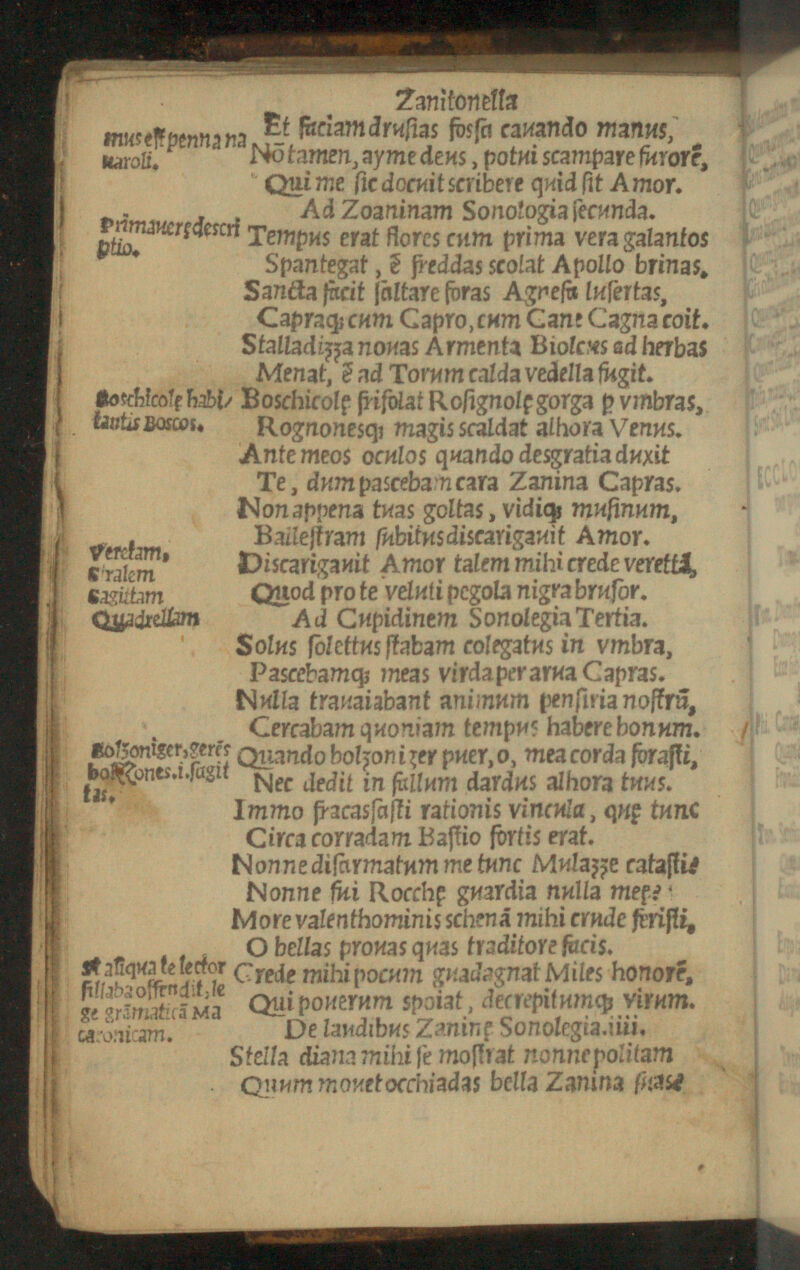 Zanitonella
mus est penna na
Maroli.
Et faciam drusias fossa cauando manus,
Nō tamen, ayme deus, potui scampare furorē,
Qui me sic docuit scribere quid sit Amor.
Ad Zoaninam Sonologia secunda.
Primauerę descri
ptio.
Tempus erat flores cum prima vera galantos
Spantegat, ē freddas scolat Apollo brinas,
Sancta facit saltare foras Agnesa lusertas,
Capraq; cum Capro, cum Cane Cagna coit.
Stalladizza nouas Armenta Biolcus ad herbas
Menat, ē ad Torum calda vedella fugit.
Boschicolę habi/
tantis Boscos.
Boschicolę frifolat Rosignolę gorga p vmbras,
Rognonesq; magis scaldat alhora Venus.
Ante meos oculos quando desgratia duxit
Te, dum pascebam cara Zanina Capras.
Non appena tuas goltas, vidiq; musinum,
Ballestram subitus discarigauit Amor.
Veretam,
Stralem
Sagittam
Quadrellam
Discarigauit Amor talem mihi crede verettā,
Quod pro te veluti pegola nigra brusor.
Ad Cupidinem Sonolegia Tertia.
Solus solettus stabam colegatus in vmbra,
Pascebamq; meas virda per arua Capras.
Nulla trauaiabant animum pensiria nostrū,
Cercabam quoniam tempus habere bonum.
Bolzoniger, gerēs
bolzones.i.sagit
tas.
Quando bolzoniger puer, o, mea corda forasti,
Nec dedit in fallum dardus alhora tuus.
Immo fracassasti rationis vincula, quę tunc
Circa corradam Bastio fortis erat.
Nonne disarmatum me tunc Mulazze catasti?
Nonne fui Rocchę guardia nulla meę?
More valenthominis schenā mihi crude feristi,
O bellas prouas quas traditore facis.
Si aliqua te lector
sillaba offendit, le
ge grāmaticā Ma
caronicam.
Crede mihi pocum guadagnat Miles honorē,
Qui pouerum spoiat, decrepitumq; virum.
De laudibus Zaninę Sonolegia.iiii.
Stella diana mihi se mostrat nonne politam
Quum mouet occhiadas bella Zanina suas?